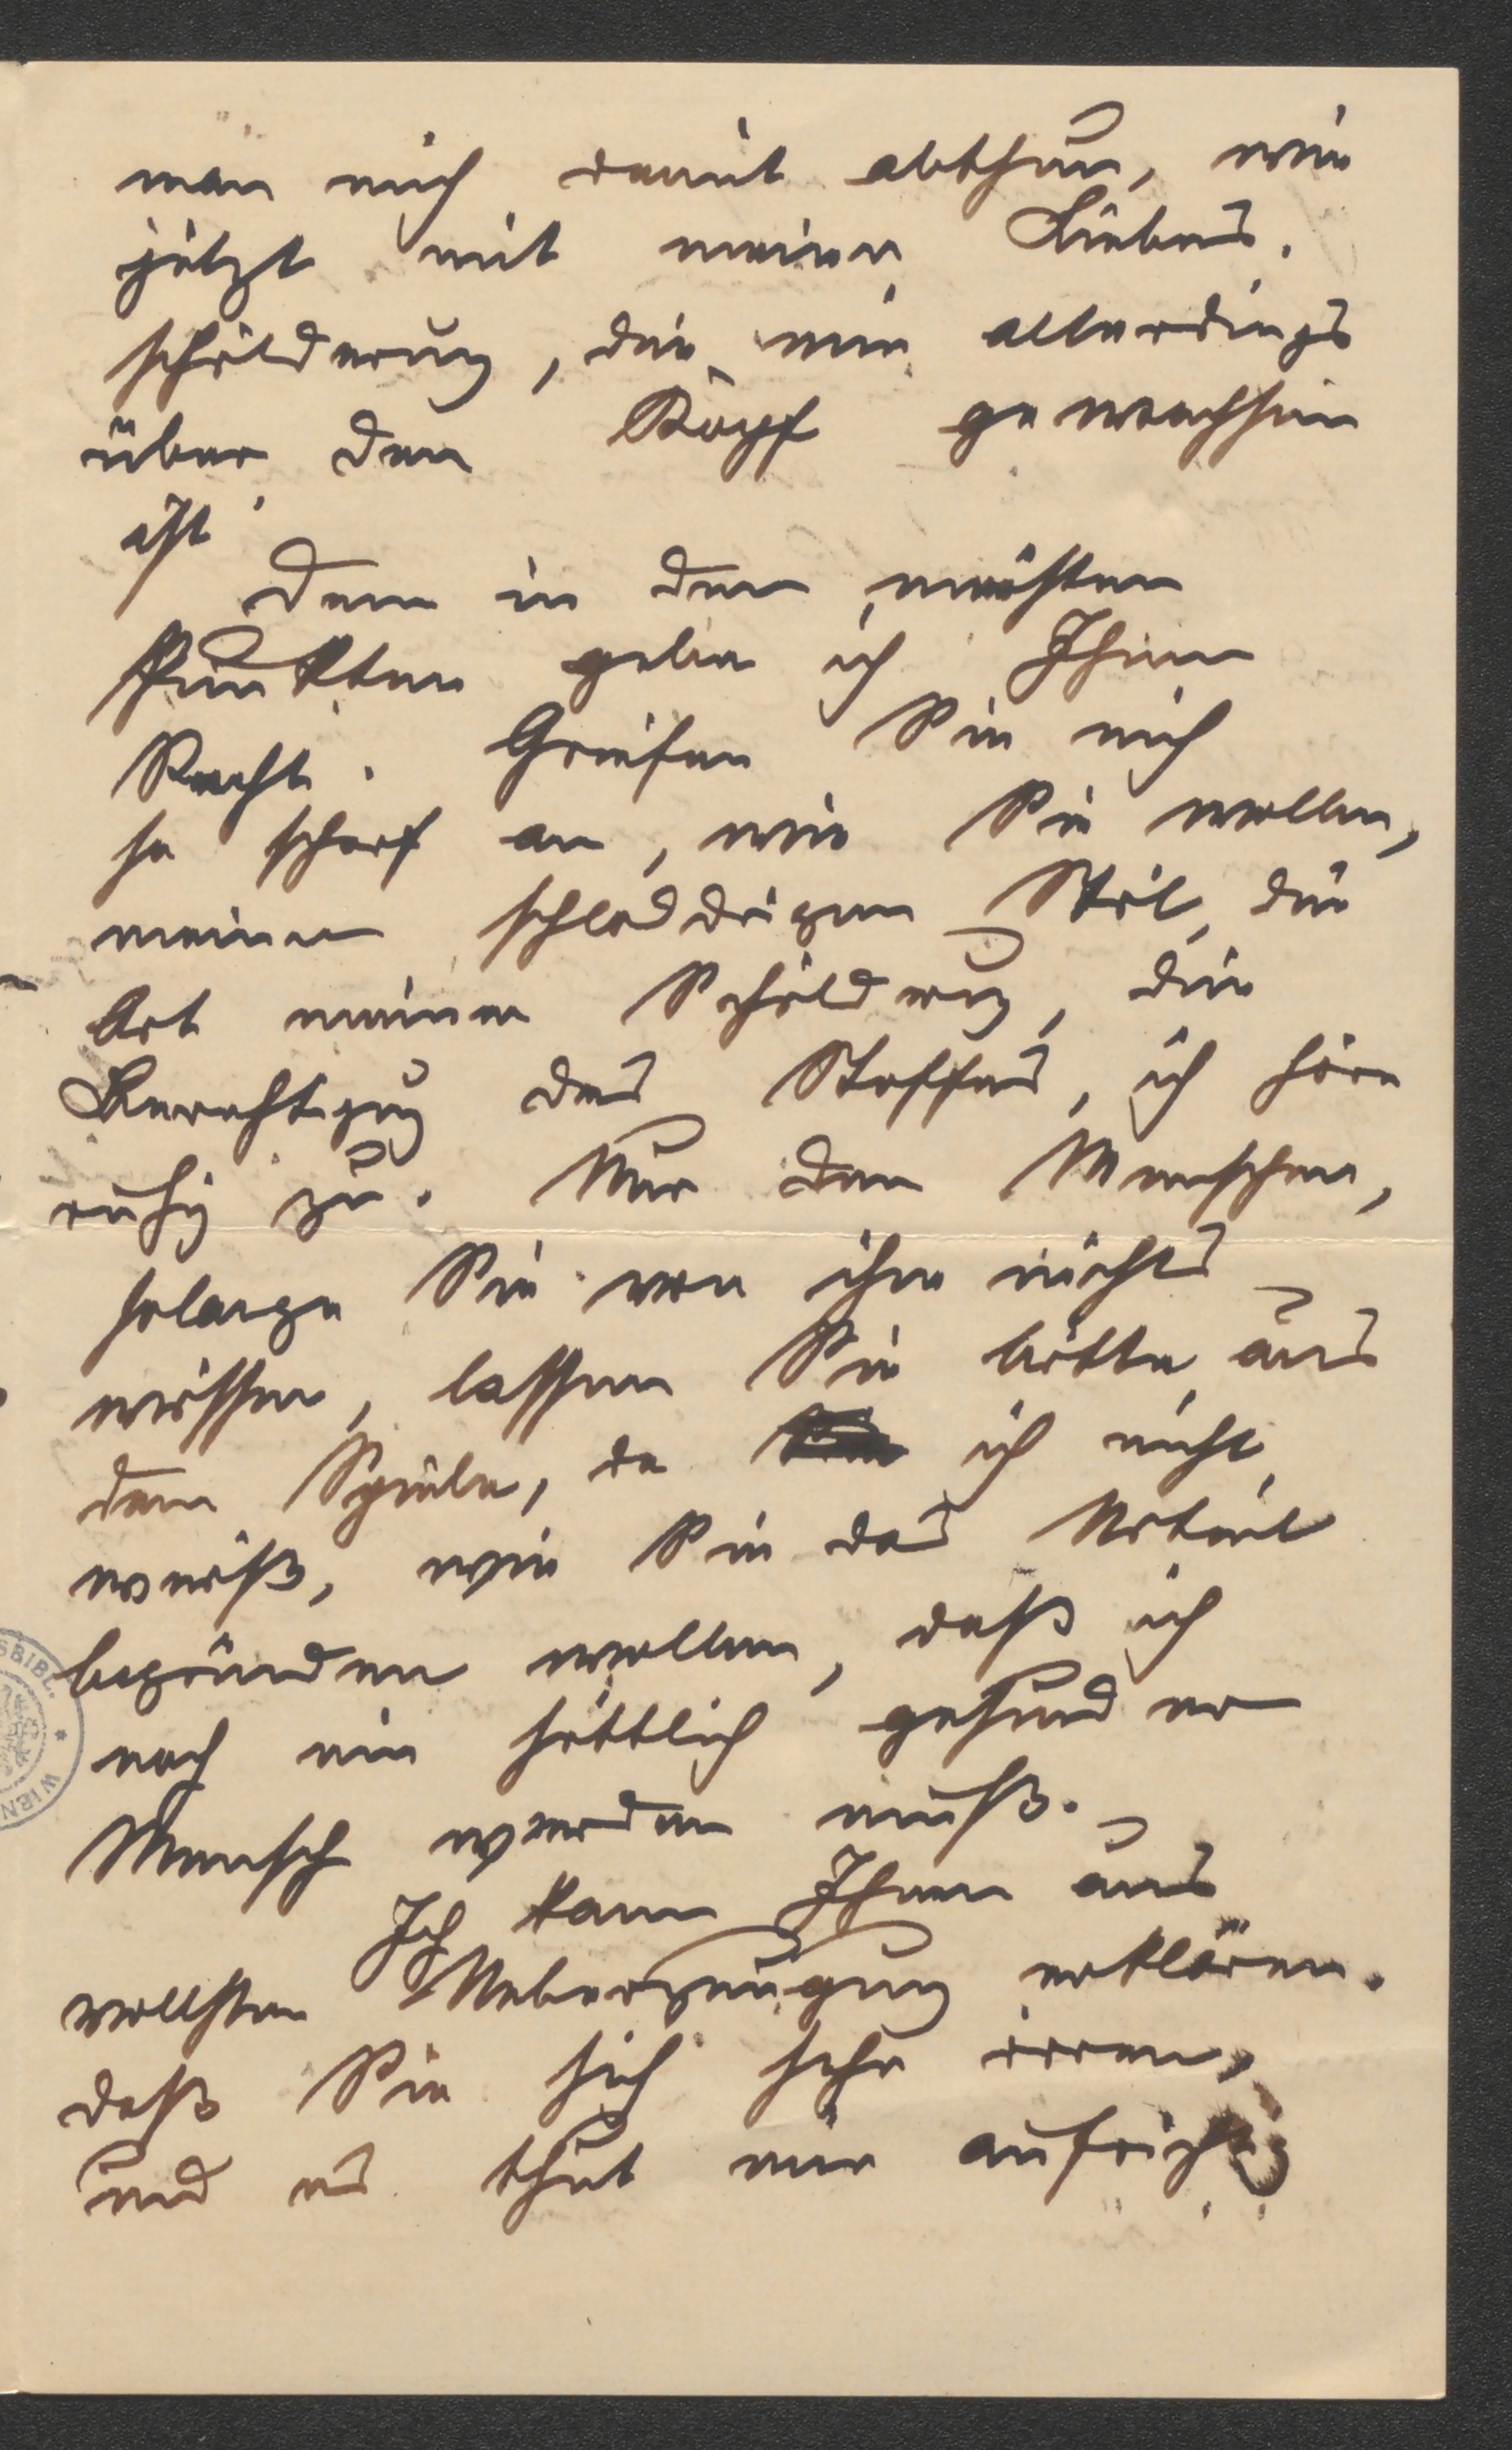 man mich damit abthun, wie
jetzt mit meiner Liebes.
schilderung, die mir allerdings
über den Kopf gewachsen
ist.
Denn in den meisten
Punkten gebe ich Ihnen
Recht. Greifen Sie mich
so scharf an, wie Sie wollen,
meinen schloddrigen Stil, die
Art meiner Schilderung, die
Berechtigung des Stoffes, ich höre
ruhig zu. Nur den Menschen,
solange Sie von ihm nichts
wissen, lassen Sie bitte aus
dem Spiele, da ich nicht
weiß, wie Sie das Urteil
begründen wollen, daß ich
noch ein sittlich gesunder
Mensch werden muß.
Ich kann Ihnen aus
vollster Ueberzeugung erklären.
daß Sie sich sehr irren,
und es thut mir aufrichtig
SBIBL.
WIEN